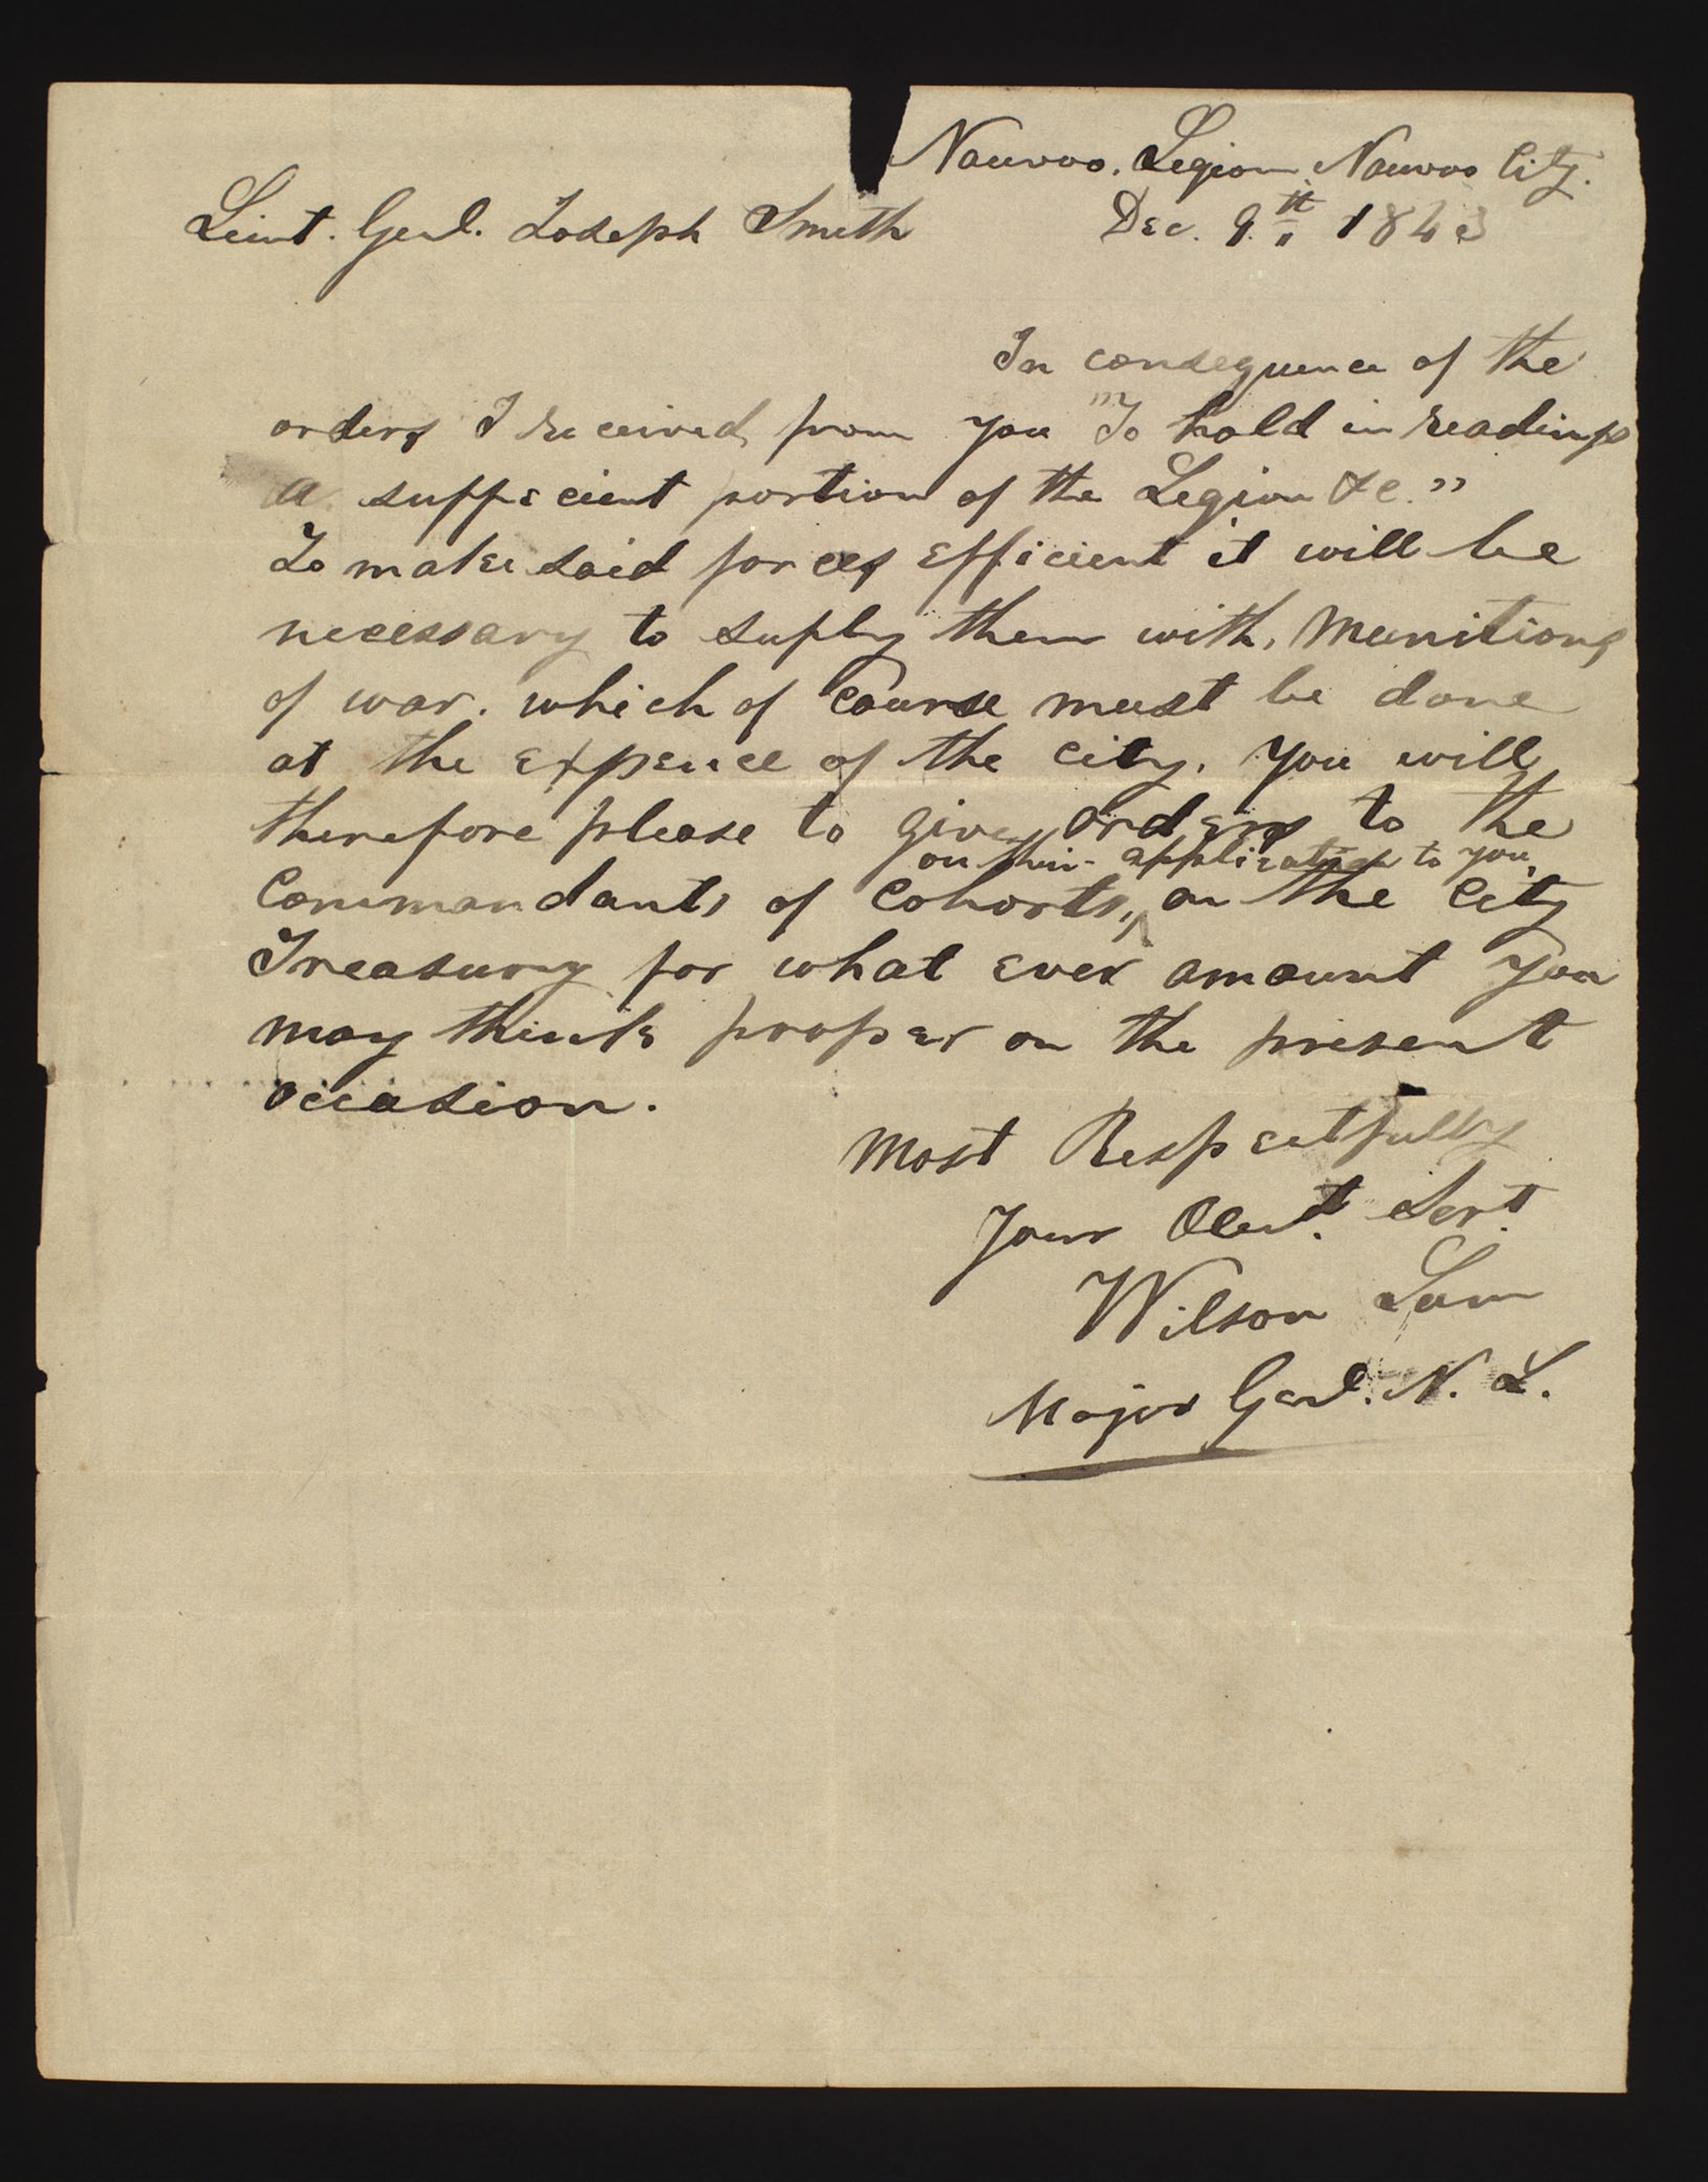 Nauvoo. Legion Nauvoo City.
Lieut. Genl. Joseph Smith Dec. 9.th 1843
In consequence of the
orders I received from you "To hold in readiness
a sufficient portion of the Legion &c."
To make said forces efficient it will be
necessary to suply them with, Munitions
of war. which of Course must be done
at the expence of the city. You will
therefore please to give orders to the
on their application to you
Commandants of Cohorts, on the City
Treasury for what ever amount you
may think proper on the present
occasion.
Most Respectfully
Your Obed't. Servt.
Wilson Law
Major Genl. N. L.